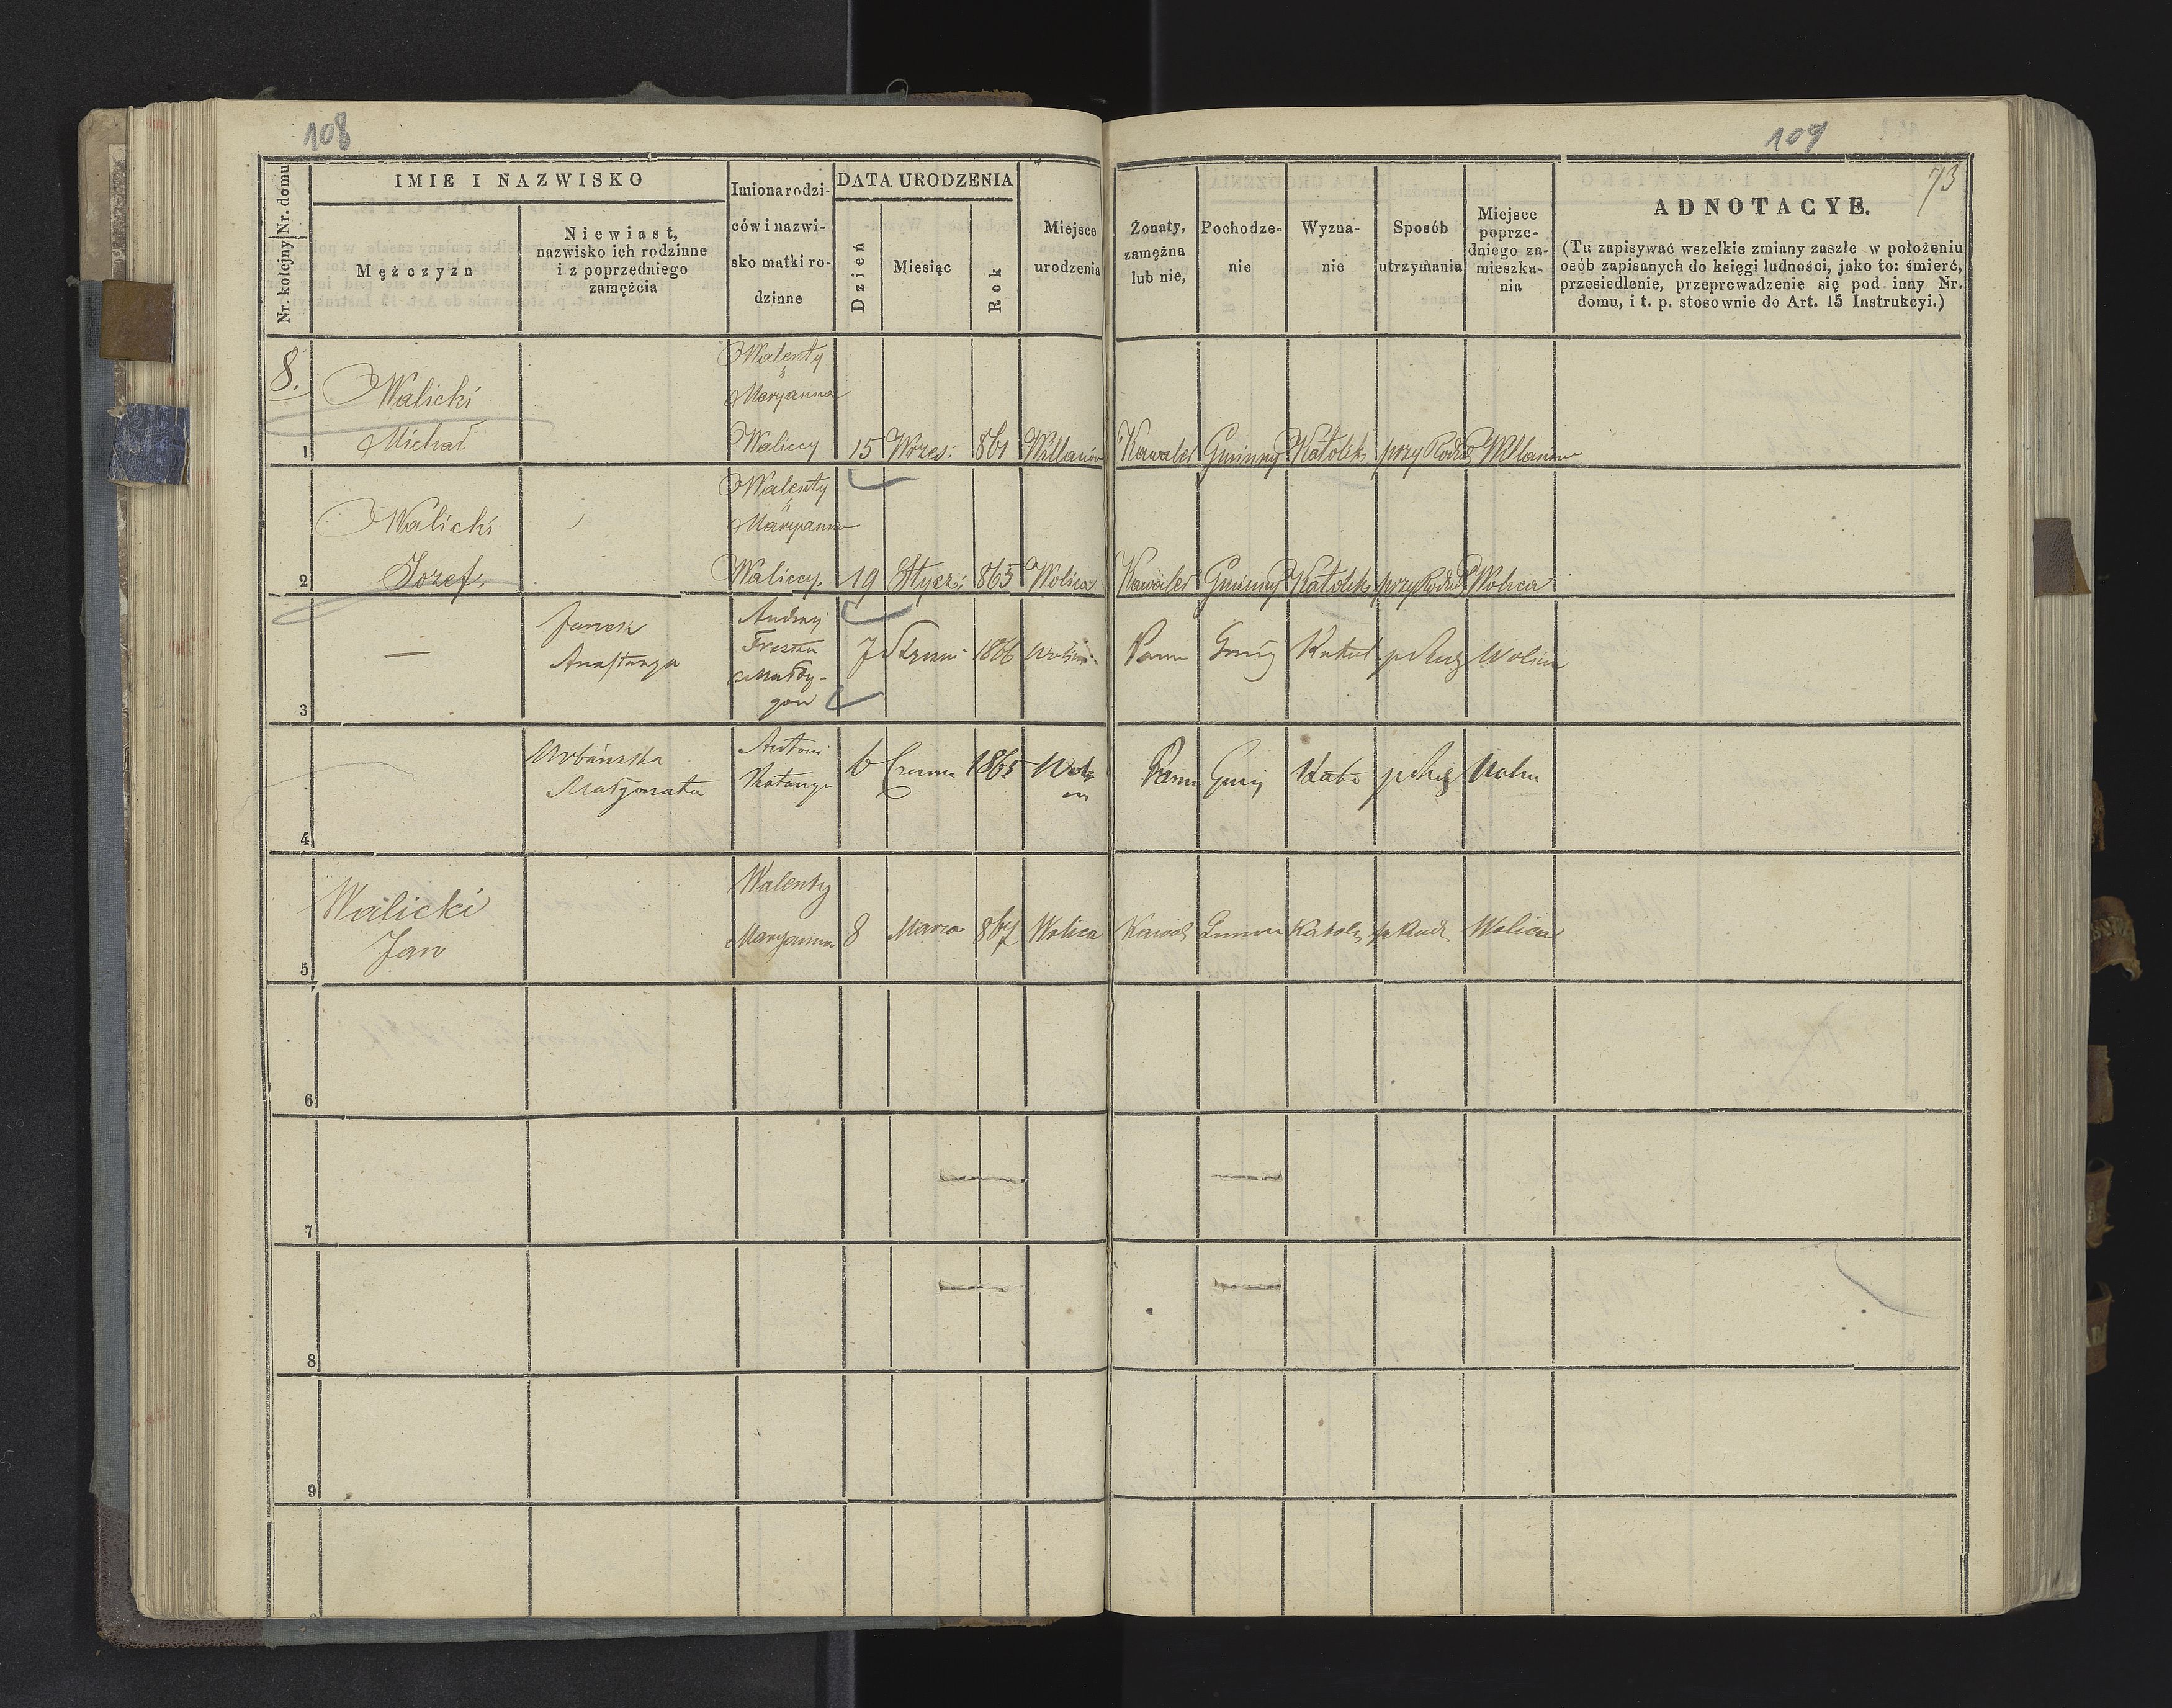 108
109
73
Nr. kolejny Nr. domu
IMIE I NAZWISKO
Mężczyzn
Niewiast,
nazwisko ich rodzinne
i z poprzedniego
zamężcia
Imiona rodzi-
ców i nazwi-
sko matki ro-
dzinne
DATA URODZENIA
Dzień
Miesiąc
Rok
Miejsce
urodzenia
Żonaty,
zamężna
lub nie,
Pochodze-
nie
Wyzna-
nie
Sposób
utrzymania
Miejsce
poprze-
dniego za-
mieszka-
nia
ADNOTACYE.
(Tu zapisywać wszelkie zmiany zaszłe w położeniu
osób zapisanych do księgi ludności, jako to: śmierć,
przesiedlenie, przeprowadzenie się pod inny Nr.
domu, i t. p. stosownie do Art. 15 Instrukcyi.)
8.
1
Walicki
Michał
Walenty
Maryanna
Waliccy
15 Wrześ: 861 Willanów Kawaler Gminny Katolik przy Rodz Willanów
2
Walicki
Jozef
Walenty
Maryanna
Waliccy.
19 Stycz: 865 Wolica Kawaler Gminny Katolik przy Rodz Wolica
3
Andrzej
7 1866
4
Urbańska
Małgorzata
Antoni
6 1865
5
Walicki
Jan
Walenty
Maryanna
8 Marca 867 Wolica Kawal Katolik Wolica
6
7
8
9